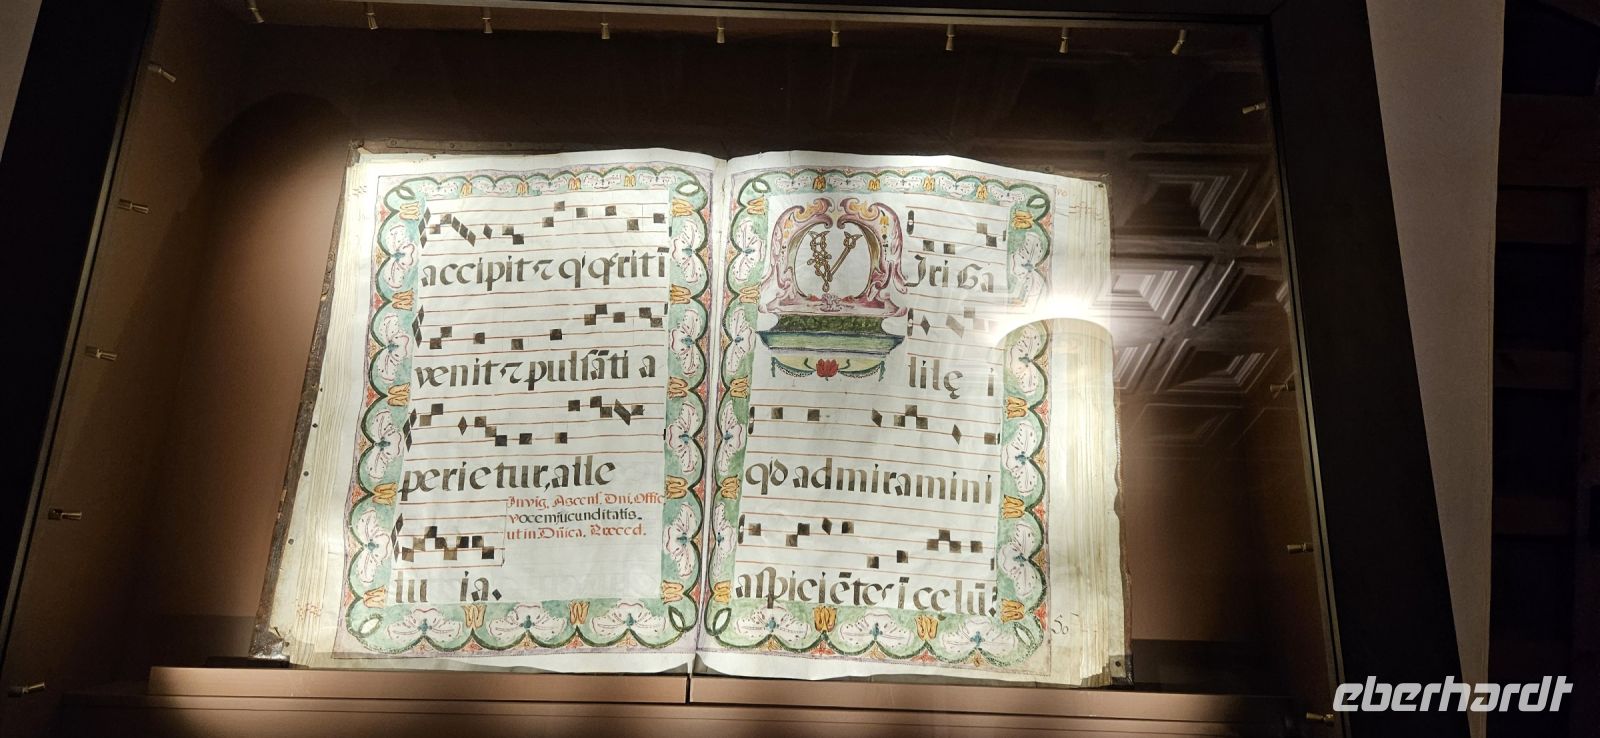 accipit ⁊ q̇ q̄rit ī
venit ⁊ pulsāti a
perietur, alle
In vig. Ascens. Dni. Offic
vocem jucunditatis.
ut in Dñica. Præced.
lu ia.
V Iri Ga
lilę i
qd admiramini
aspiciētes ī cęlū?
eberhardt